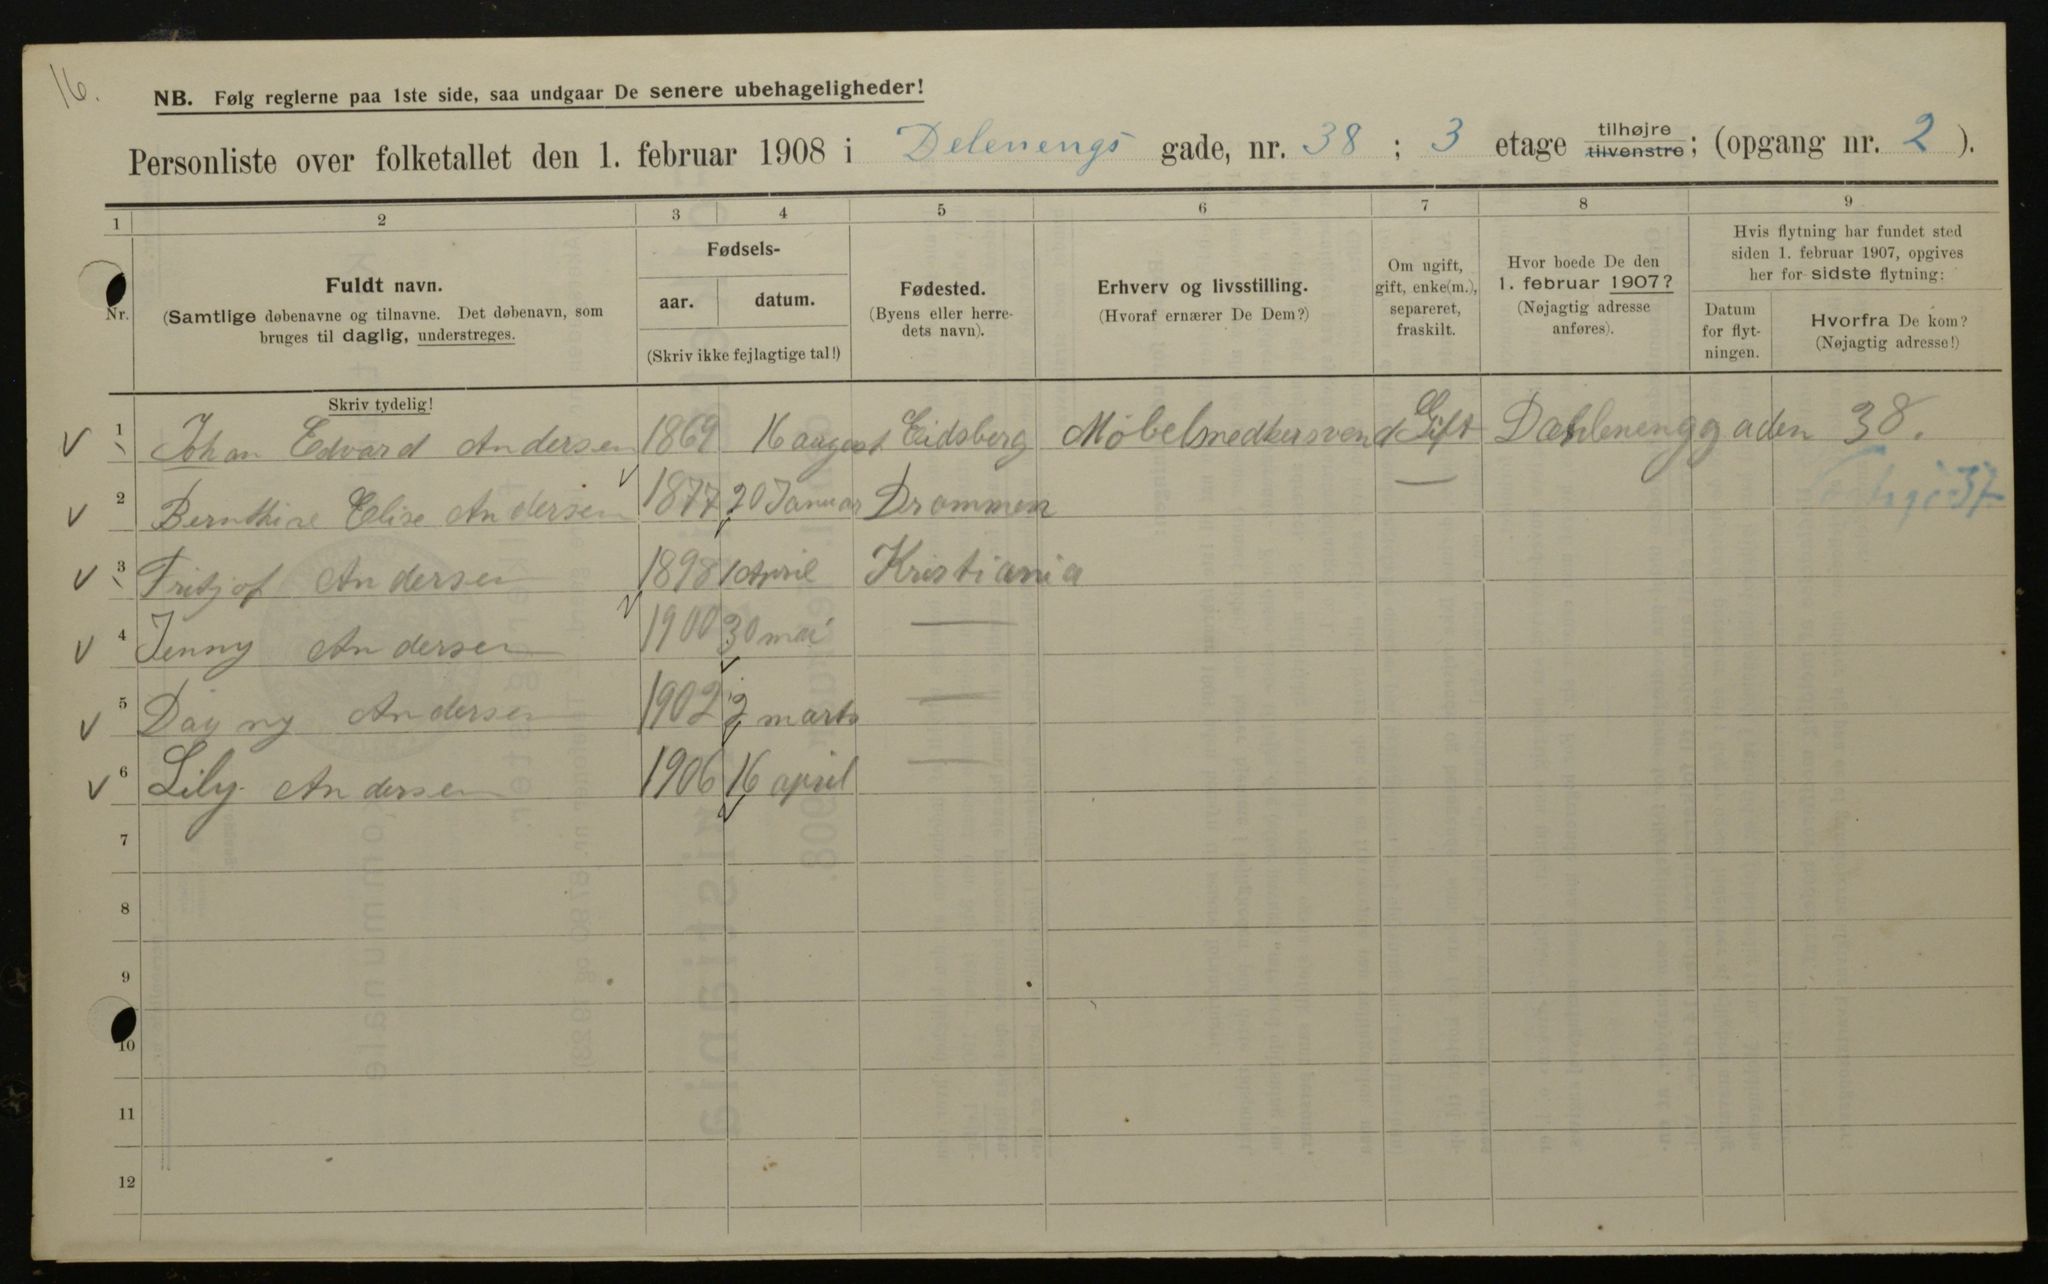 16.
NB. Følg reglerne paa 1ste side, saa undgaar De senere ubehageligheder!
Personliste over folketallet den 1. februar 1908 i Delenengs gade, nr. 38 ; 3 etage tilhøjre tilvenstre; (opgang nr. 2 ).
1 2 3 4 5 6 7 8 9
Nr.
Fuldt navn.
(Samtlige døbenavne og tilnavne. Det døbenavn, som
bruges til daglig, understreges.
Skriv tydelig!
Fødsels-
aar. datum.
(Skriv ikke fejlagtige tal!)
Fødested.
(Byens eller herre-
dets navn).
Erhverv og livsstilling.
(Hvoraf ernærer De Dem?)
Om ugift,
gift, enke(m.),
separeret,
fraskilt.
Hvor boede De den
1. februar 1907?
(Nøjagtig adresse
anføres).
Hvis flytning har fundet sted
siden 1. februar 1907, opgives
her for sidste flytning:
Datum
for flyt-
ningen.
Hvorfra De kom?
(Nøjagtig adresse!)
1 Johan Edvard Andersen 1869 16 august Eidsberg Møbelsnedkersvend Gift Dahlenenggaden 38.
2 Bernthine Elise Andersen 1877 20 Januar Drammen —
37
3 Fritjof Andersen 1898 1 April Kristiania
4 Jenny Andersen 1900 30 mai —
5 Dagny Andersen 1902 2 marts —
6 Lily Andersen 1906 16 april —
7
8
9
10
11
12